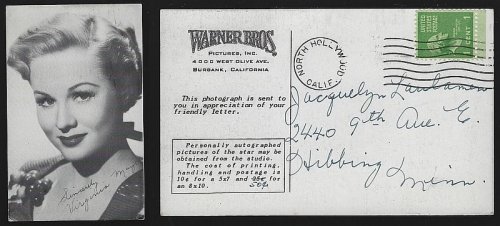 Sincerely
Virginia Mayo
WARNER BROS.
PICTURES, INC.
4000 WEST OLIVE AVE.
BURBANK, CALIFORNIA
This photograph is sent to
you in appreciation of your
friendly letter.
Personally autographed
pictures of the star may be
obtained from the studio.
The cost of printing,
handling and postage is
10¢ for a 5x7 and 25¢ for
an 8x10. 50¢
NORTH HOLLYWOOD
CALIF.
1
CENT
Jacquelyn
2440 9th Ave. E.
Hibbing
Minn.